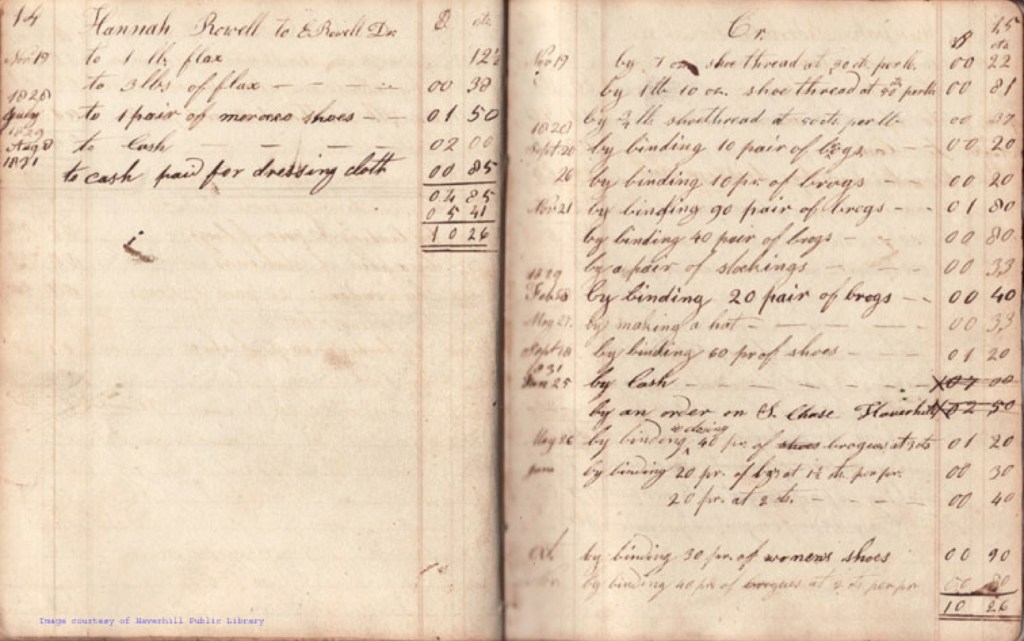 14 Hannah Rowell to E Rowell Dr. $ cts
Nov 19 to 1 lb flax 12½
to 3 lbs of flax 00 38
1828
July to 1 pair of morocco shoes 01 50
1829
Aug 8 to Cash 02 00
1831
to cash paid for dressing cloth 00 85
04 85
05 41
10 26
15
Cr. $ cts
Nov 19 by 7 oz shoethread at 50 cts per lb 00 22
by 1 lb 10 oz. shoe thread at 50 per lb 00 81
by ¾ lb shoethread at 50 cts per lb 00 37
1828
Sept 20 by binding 10 pair of brogs 00 20
26 by binding 10 pr. of brogs 00 20
Nov 21 by binding 90 pair of brogs 01 80
by binding 40 pair of brogs 00 80
by a pair of stockings 00 33
1829
Feb 28 by binding 20 pair of brogs 00 40
May 27 by making a hat 00 33
Sept 18 by binding 60 pr of shoes 01 20
1831
Jan 25 by Cash
by an order on S. Chase Haverhill 02 50
May 26 by binding 40 pr. of shoes brogues at 3 cts 01 20
by binding 20 pr. of at 1½ cts. per pr. 00 30
20 pr. at 2 cts. 00 40
by binding 30 pr. of womens shoes 00 90
by binding 40 pr of brogues at 2 cts per pr 00 80
10 26
Image courtesy of Haverhill Public Library